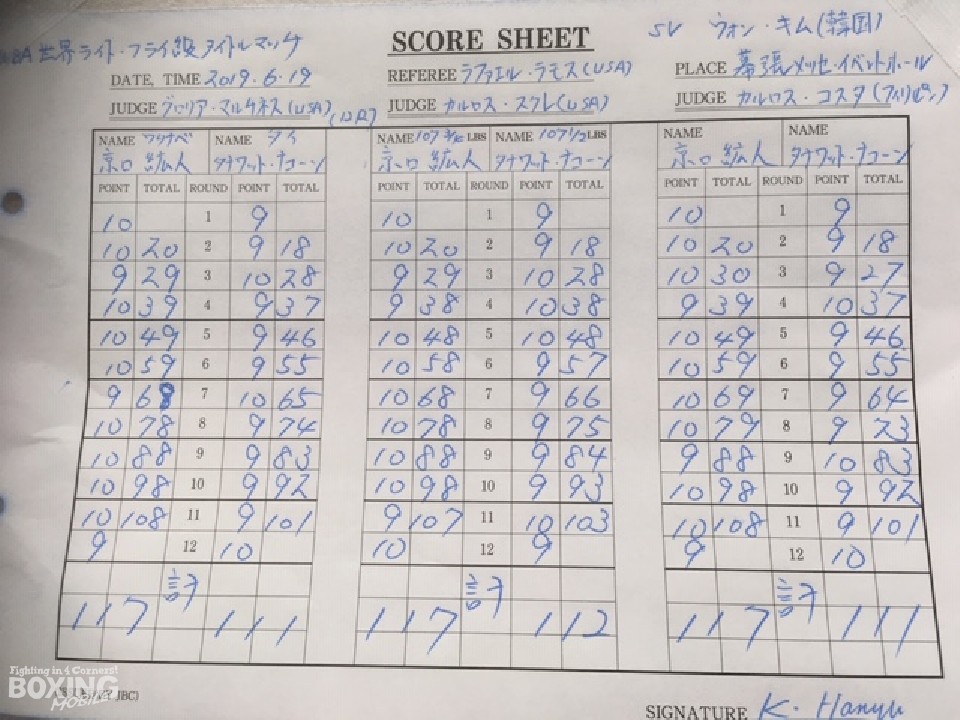 WBA世界ライト・フライ級タイトルマッチ
SCORE SHEET
SV ウォン・キム(韓国)
DATE, TIME 2019.6.19
REFEREE ラファエル・ラモス(USA)
PLACE 幕張メッセ・イベントホール
JUDGE グロリア・マルチネス(USA) (12R)
JUDGE カルロス・スクレ(USA)
JUDGE カルロス・コスタ(フィリピン)
NAME ワタナベ NAME タイ NAME 107 LBS NAME 107 1/2 LBS NAME NAME
京口 紘人 タナワット・ナコーン 京口 紘人 タナワット・ナコーン 京口 紘人 タナワット・ナコーン
POINT TOTAL ROUND POINT TOTAL POINT TOTAL ROUND POINT TOTAL POINT TOTAL ROUND POINT TOTAL
10 1 9 10 1 9 10 1 9
10 20 2 9 18 10 20 2 9 18 10 20 2 9 18
9 29 3 10 28 9 29 3 10 28 10 30 3 9 27
10 39 4 9 37 9 38 4 10 38 9 39 4 10 37
10 49 5 9 46 10 48 5 10 48 10 49 5 9 46
10 59 6 9 55 10 58 6 9 57 10 59 6 9 55
9 68 7 10 65 10 68 7 9 66 10 69 7 9 64
10 78 8 9 74 10 78 8 9 75 10 79 8 9 73
10 88 9 9 83 10 88 9 9 84 9 88 9 10 83
10 98 10 9 92 10 98 10 9 93 10 98 10 9 92
10 108 11 9 101 9 107 11 10 103 10 108 11 9 101
9 12 10 10 12 9 9 12 10
計 計 計
117 111 117 112 117 111
Fighting in 4 Corners!
BOXING
MOBILE
JBC)
SIGNATURE K. Hanyu